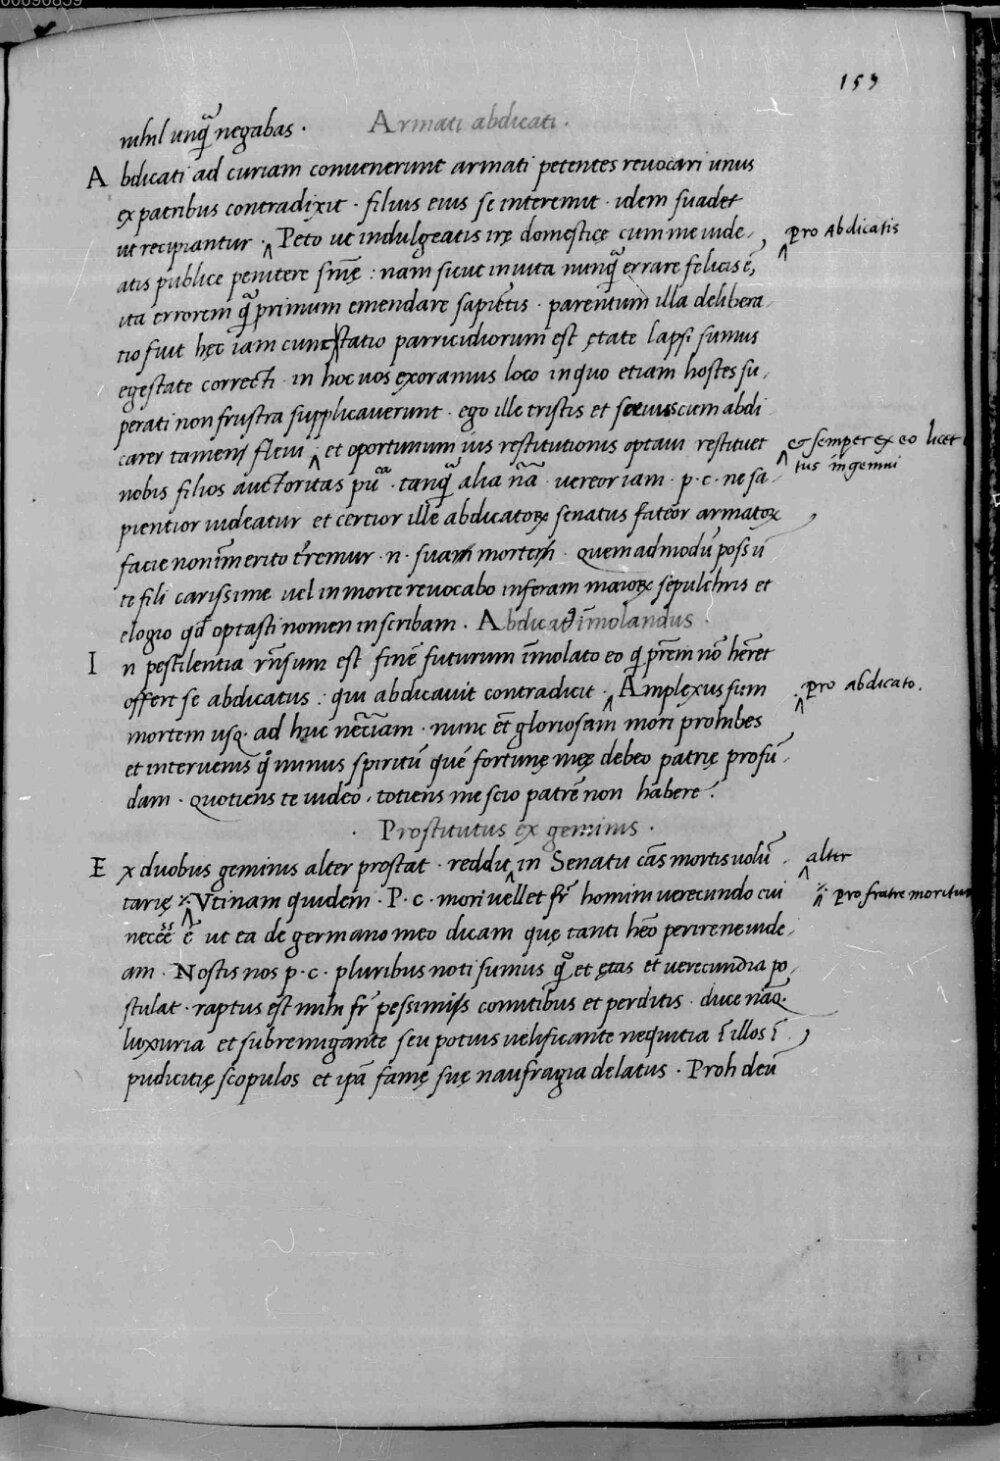 153
nihil unq̃ negabas · Armati abdicati ·
A bdicati ad curiam convenerunt armati petentes revocari unus
ex patribus contradixit · filius eius se interemit · idem suadet
ut recipiantur · Peto ut indulgeatis irę domesticę cum me vide, pro Abdicatis
atis publice penitere smę̃ : nam sicut in vita nunq̃ errare felicis ẽ,
ita errorem q̃ primum emendare sapiẽtis · parentum illa delibera
tio fuit hęc iam cunctatio parricidiorum est ętate lapsi sumus
egestate correcti · in hoc vos exoramus loco in quo etiam hostes su,
perati non frustra supplicaverunt · ego ille tristis et sevus cum abdi
carer tamen flevi ; et oportunum ius restitutionis optavi restituet & semper ex eo licet
nobis filios auctoritas · tanq̃ alia nr̃a · vereor iam · p · c · ne sa, tus ingemui
pientior videatur et certior ille abdicatoꝝ senatus fateor armatoꝝ
facie non ĩmerito tr̃emur · n · suam mortem · quemadmodũ possũ
te fili carissime vel in morte revocabo inferam maioꝝ sepulchris et
elogio qđ optasti nomen inscribam · Abdicat⁹ ĩmolandus ·
I n pestilentia rñsum est finẽ futurum ĩmolato eo q̃ pr̃em nõ her̃et
offert se abdicatus : qui abdicavit contradicit · Amplexus sum · pro abdicato ·
mortem usq · ad huc · nunc et gloriosam mori prohibes
et intervenis minus spiritũ quẽ fortunę męę debeo patrię profũ,
dam · quotiens te video, totiens me scio patrẽ non habere ·
· Prostitutus ex geminis ·
E x duobus geminis alter prostat · reddit in Senatu cãs mortis volũ, alter
tarię · Utinam quidem · P · c · mori vellet fr̃ homini verecundo cui · pro fratre morituro
necẽẽ ẽ ut ea de germano meo dicam quę tanti heo perire ne vide,
am · Nostis nos p · c · pluribus noti sumus q̃ et ętas et verecundia po,
stulat · raptus est mihi fr̃ pessimis comitibus et perditis · duce nãq ·
luxuria et subremigante seu potius velificante nequitia ĩ illos ĩ,
pudicitię scopulos et ip̃a famę suę naufragia delatus · Proh deũ